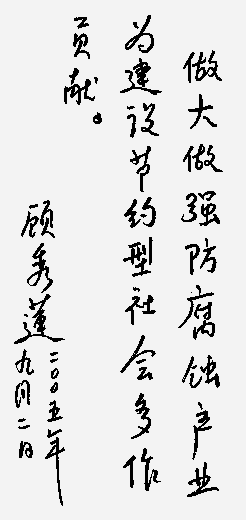 做大做强防腐蚀产业
为建设节约型社会多作
贡献。
顾秀莲
二〇〇五年
九月二日